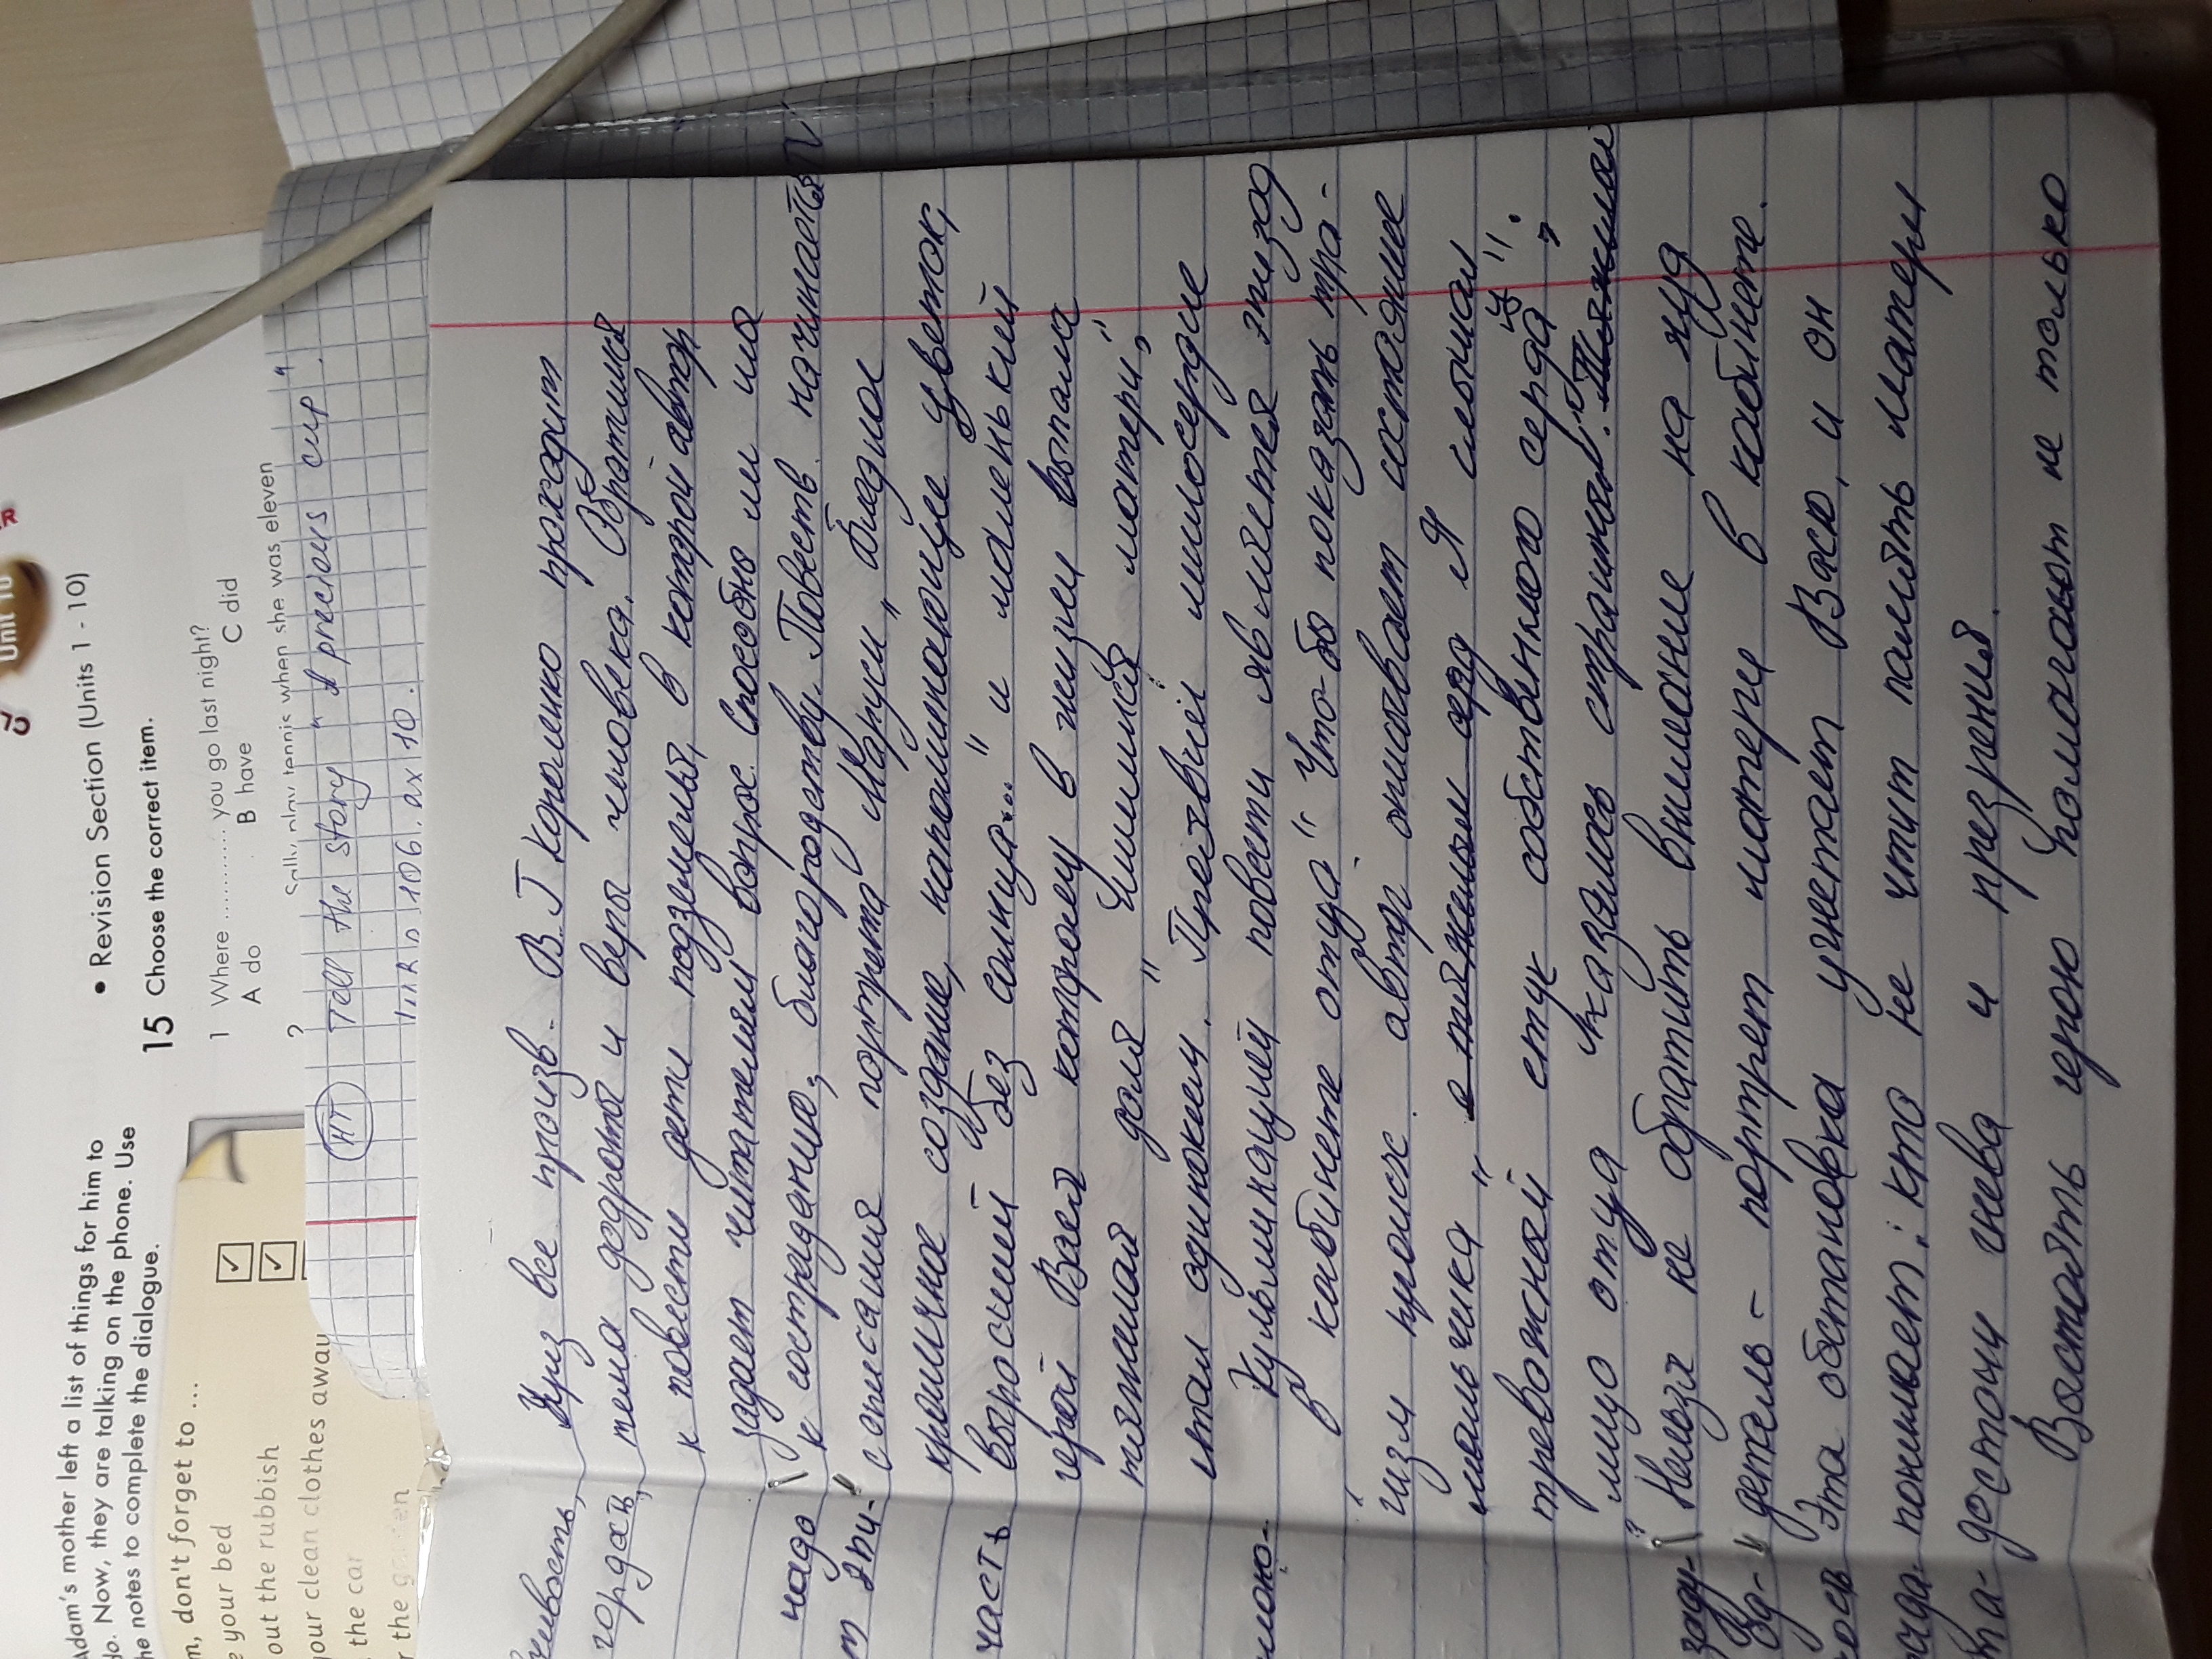 • Revision Section (Units 1 - 10)
15 Choose the correct item.
1 Where .......... you go last night?
A do B have C did
Sally play tennis when she was eleven
?
Adam's mother left a list of things for him to
do. Now, they are talking on the phone. Use
he notes to complete the dialogue.
m, don't forget to ...
e your bed
out the rubbish
your clean clothes away
the car
r the garden
НТ Tell the story "A precious cup".
106 ex 10.
Чриз все произв. В.Г Короленко проходит
тема доброты и веры человека. Обратимся
к повести дети подземелья, в которой автор
задает читателям вопрос. способны ли мы
к состраданию, благородству. Повеств. начинается
с описания портрета Маруси „бледное
крошечное создание, напоминающее цветок,
выросший без солнца..." и маленький
герой Вася которому в жизни выпала
тяжелая доля" Лишился матери,
стал одиноким.
Кульминацией повести является эпизод
в кабинете отца" Что-бы показать тра-
гизм происх. автор описывает состояние
мальчика „ Я слышал
тревожной стук собственного серд
лицо отца казалось страшное".
Нельзя не обратить внимание на худ
деталь- портрет матери в кабинете.
Эта обстановка угнетает Васю, и он
понимает: кто не чтит память матери
достоин гнева и презрения.
Выстоять герою помогают не только
живость,
гордость,
надо
часть